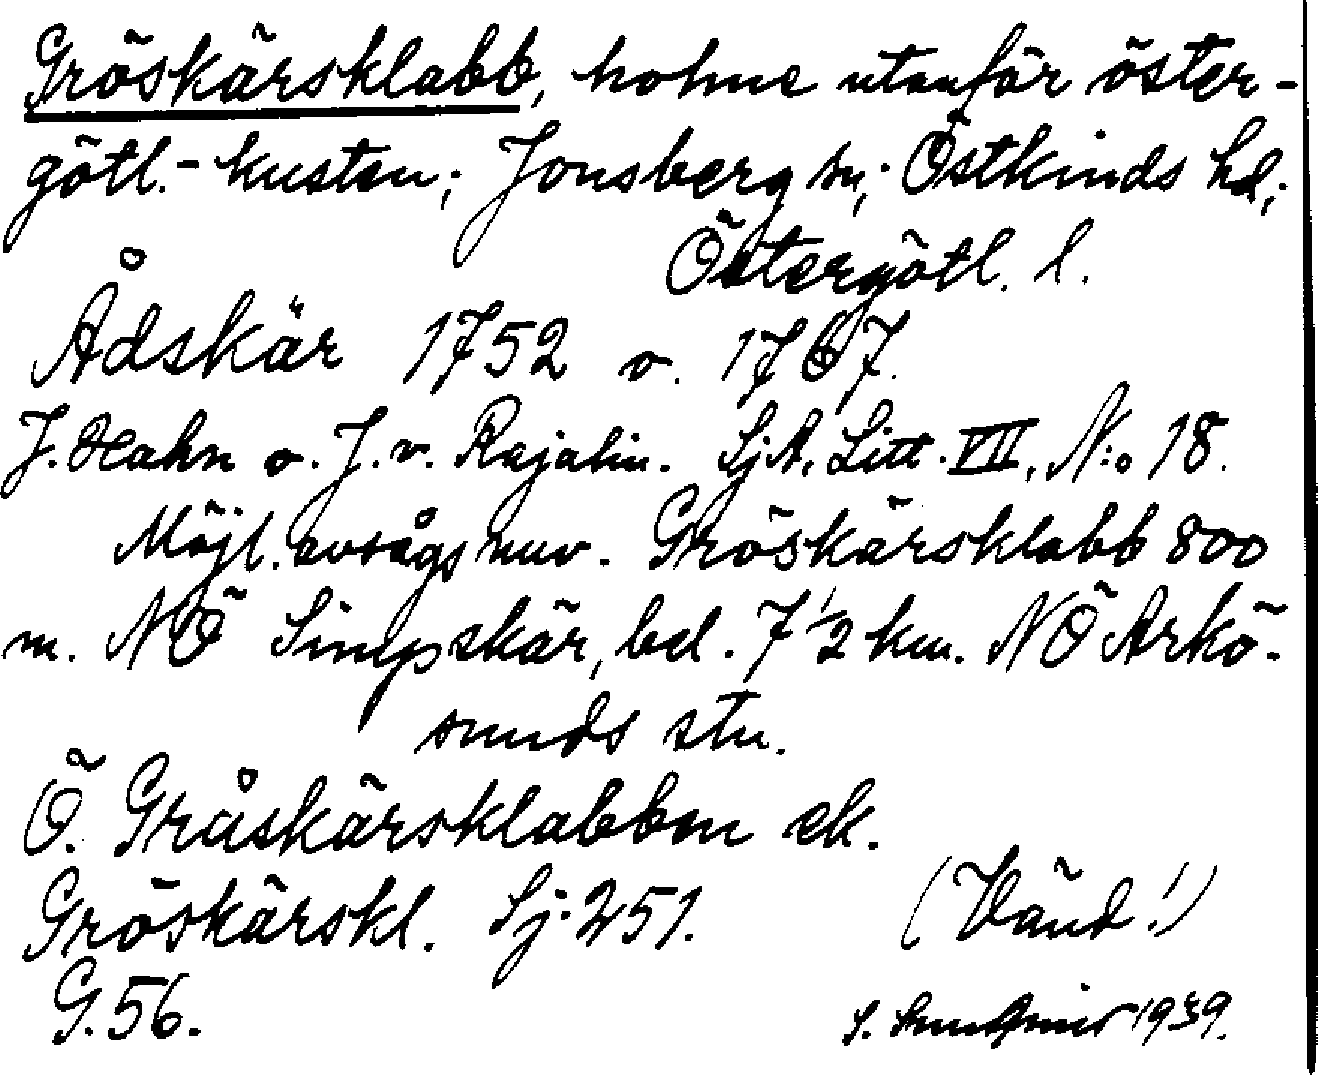 Gröskärsklabb, holme utanför öster-
götl.-kusten; Jonsberg sn; Östkinds hd;
Östergötl. l.
Ådskär 1752 o. 1767.
J. Hahn o. J. v. Rajalin. SjA, Litt. VII, N:o 18.
Möjl. avsågs nuv. Gröskärsklabb 800
m. NÖ Simpskär, bel. 7 1/2 km. NÖ Arkö-
sunds stn.
Ö. Gråskärsklabben ek.
Gröskärskl. Sj. 251. (Vänd!)
G. 56.
S. 1939.